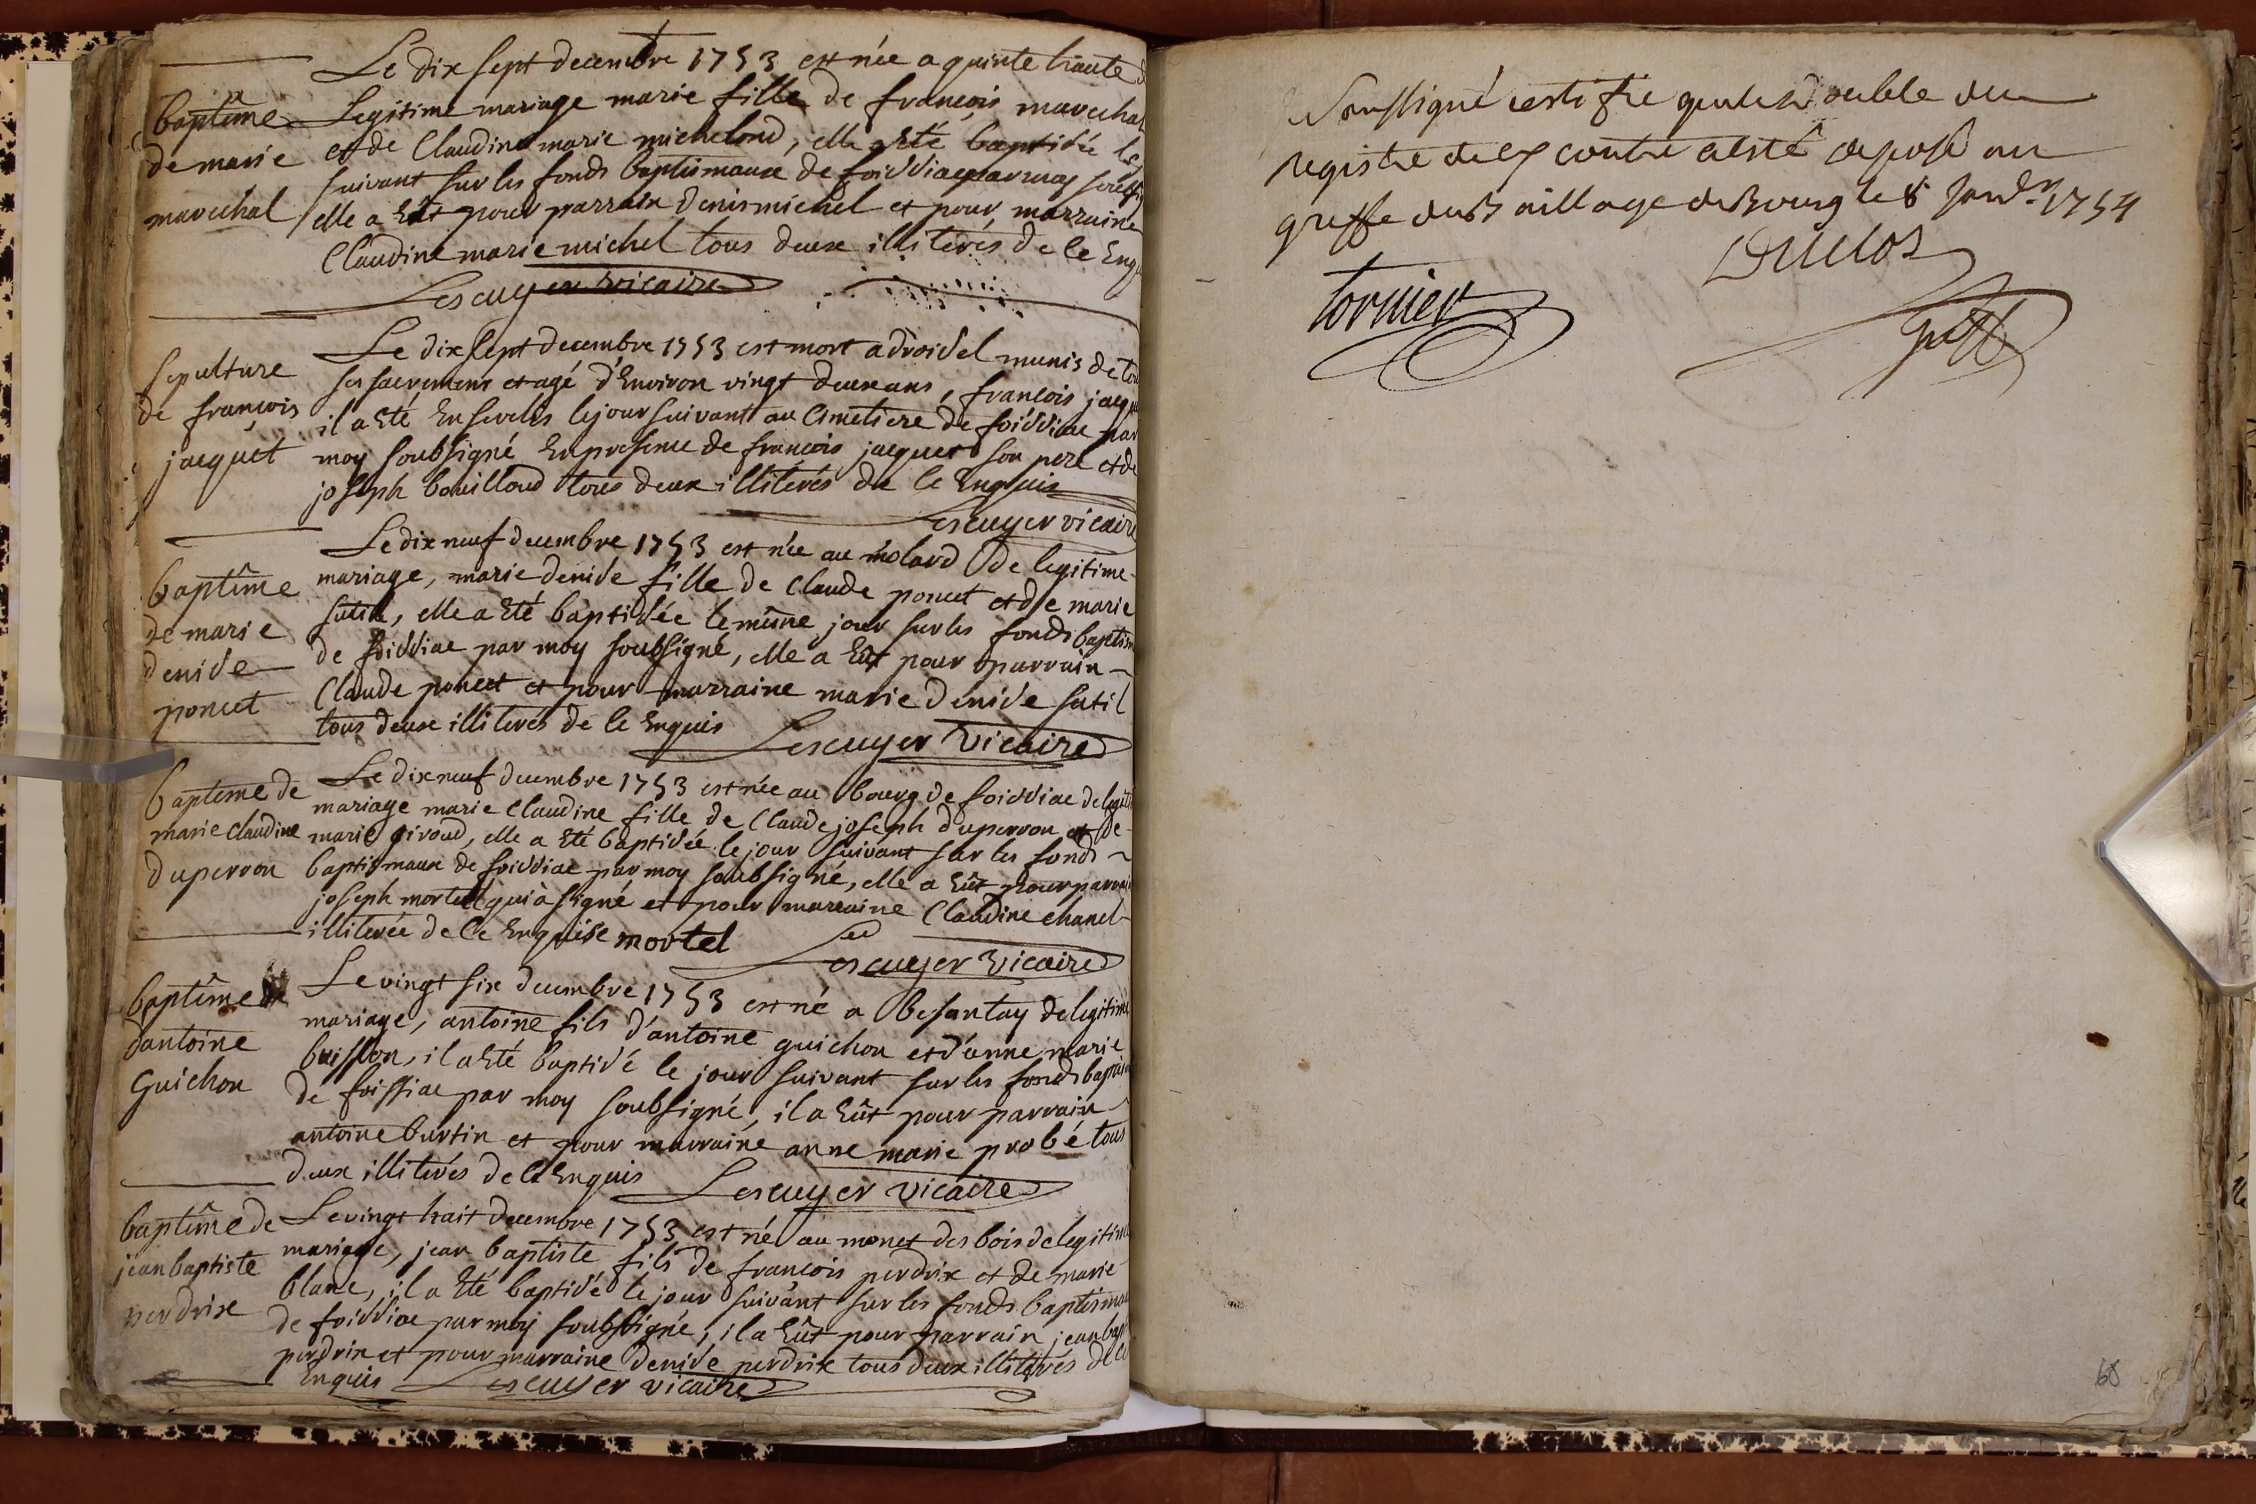 Le dix sept decembre 1753 est née a quinte haute
baptême
de marie
marechal
Legitime mariage marie fille de françois marechal
et de Claudine marie michelond, elle a été baptisée le
suivant sur les fonds baptismaux de foissiac par moy
elle a hût pour parrain denis michel et pour marraine
Claudine marie michel tous deux illiterés de ce
Lescuyer vicaire
sepulture
de françois
jacquet
Le dix sept decembre 1753 est mort a droisel munis de
ses sacremens et agé d'Environ vingt deux ans, françois
il a été Enseveli le jour suivant au Cimetiere de foissiac par
moy soubsigné En presence de francois jacquet son pere et de
joseph bouilloud tous deux illiterés de ce Enquis
Lescuyer vicaire
baptême
de marie
denise
poncet
Le dix neuf decembre 1753 est née au molard de legitime
mariage, marie denise fille de Claude poncet et de marie
sutil, elle a été baptisée le même jour sur les fonds
de foissiac par moy soubsigné, elle a hût pour parrain
Claude poncet et pour marraine marie denise sutil
tous deux illiterés de ce Enquis
Lescuyer Vicaire
baptême de
marie Claudine
duperron
Le dix neuf decembre 1753 est née au bourg de foissiac de
mariage marie Claudine fille de Claude joseph duperron et de
marie giroud, elle a été baptisée le jour suivant sur les fonds
baptismaux de foissiac par moy soubsigné, elle a hût pour
joseph mortel qui à signé et pour marraine Claudine chanel
illiterée de ce Enquise mortel
Lescuyer Vicaire
baptême
dantoine
Guichon
Le vingt six decembre 1753 est né a besantay de legitime
mariage, antoine fils d'antoine guichon et d'anne marie
buisson, il a été baptisé le jour suivant sur les fonds
de foissiac par moy soubsigné, il a hût pour parrain
antoine burtin et pour marraine anne marie probé tous
deux illiterés de ce Enquis
Lescuyer vicaire
baptême de
jean baptiste
perdrix
Le vingt huit decembre 1753 est né au monet des bois de legitime
mariage, jean baptiste fils de francois perdrix et de marie
blanc, il a été baptisé le jour suivant sur les fonds
de foissiac par moy soubsigné, il a hût pour parrain
perdrix et pour marraine denise perdrix tous deux illiterés
Enquis
Lescuyer vicaire
soussigné certifie que le double du
registre cy contre a esté deposé au
greffe du Baillage de Bourg le 8 Janv.r 1754
Duclos
tornier
greff
68